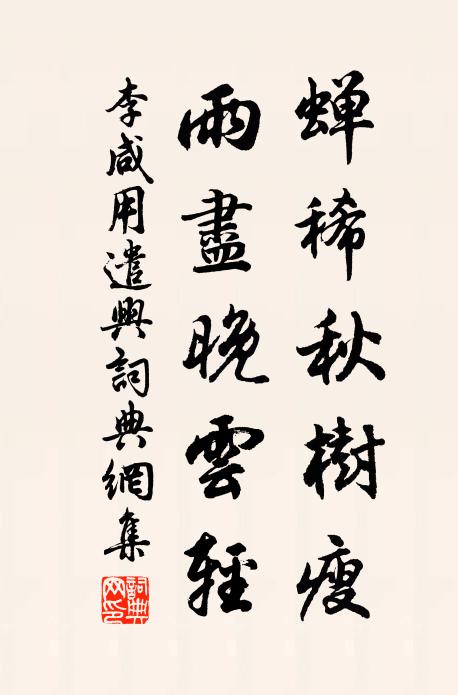 蝉稀秋樹瘦
雨盡晚雲輕
李咸用遣興詞典網集
詞典網印